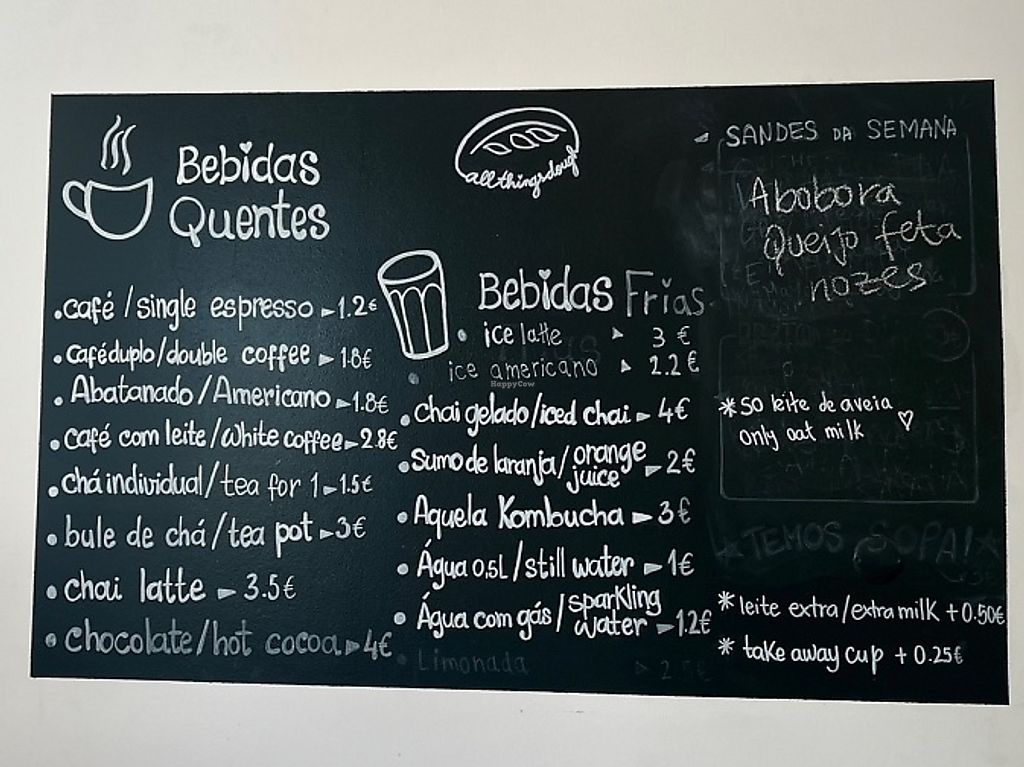 Bebidas
Quentes
café / single espresso ► 1.2€
Café duplo / double coffee ► 1.8€
Abatanado / Americano ► 1.8€
café com leite / White coffee ► 2.8€
chá individual / tea for 1 ► 1.5€
bule de chá / tea pot ► 3€
chai latte ► 3.5€
chocolate / hot cocoa ► 4€
allthingsdough
Bebidas Frias
ice latte ► 3 €
ice americano ► 2.2 €
HappyCow
chai gelado / iced chai ► 4€
sumo de laranja / orange juice ► 2€
Aquela Kombucha ► 3€
Água 0,5L / still water ► 1€
Água com gás / sparkling water ► 1.2€
Limonada ► 2.5€
SANDES DA SEMANA
Abobora
Queijo feta
nozes
* SO leite de aveia
only oat milk ♡
★ TEMOS SOPA! ★
* leite extra / extra milk + 0.50€
* take away cup + 0.25€